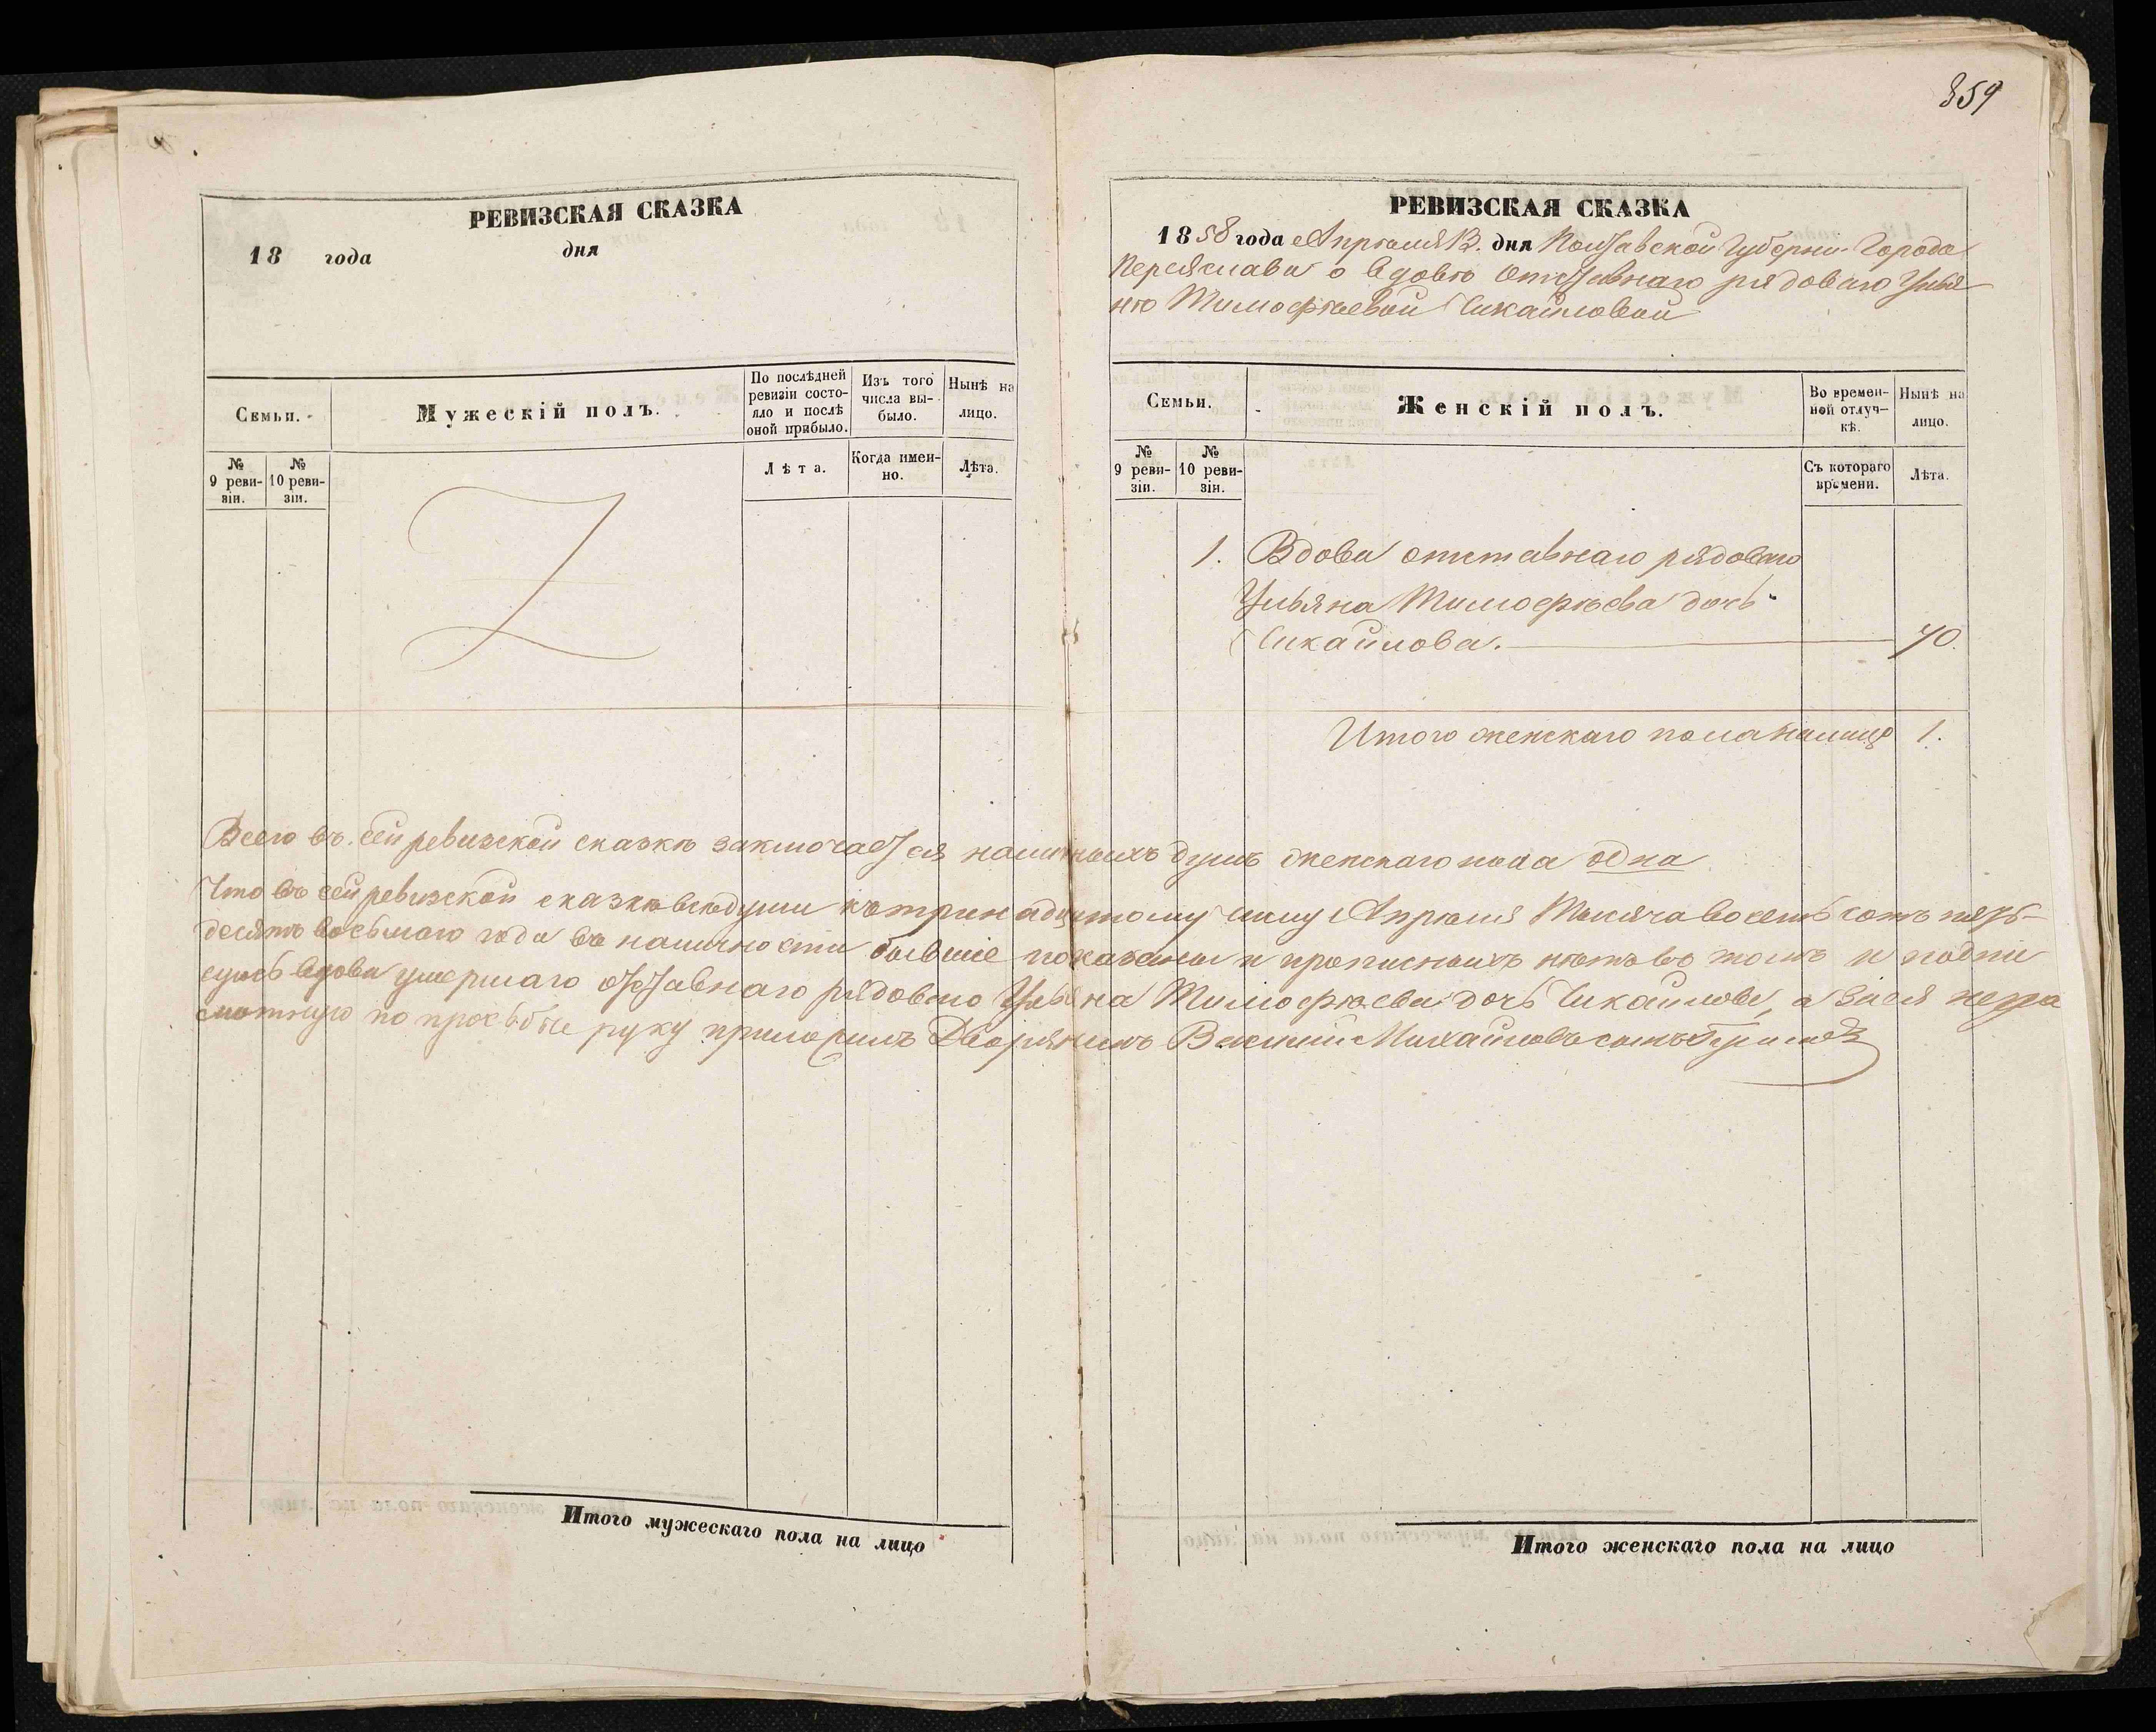 859
РЕВИЗСКАЯ СКАЗКА
18 года дня
Семьи.
Мужескій полъ.
По послѣдней ревизіи состояло и послѣ оной прибыло.
Изъ того числа выбыло.
Нынѣ на лицо.
№ 9 ревизіи.
№ 10 ревизіи.
Лѣта.
Когда именно.
Лѣта.
РЕВИЗСКАЯ СКАЗКА
1858 года Апрѣля 13. дня Полтавской Губерніи Города
Переяслава о вдовѣ Отставнаго рядоваго Улья
нѣ Тимофѣевой Чикайловой
Семьи.
Женскій полъ.
Во временной отлучкѣ.
Нынѣ на лицо.
№ 9 ревизіи.
№ 10 ревизіи.
Съ котораго времени.
Лѣта.
1. Вдова отставнаго рядоваго
Ульяна Тимофѣева дочь
Чикайлова. 70.
Итого женскаго пола налицо 1.
Всего въ сей ревизской сказкѣ заключается наличныхъ душъ женскаго пола одна
Что въ сей ревизской сказкѣ всѣ души къ тринадцатому числу Апрѣля Мѣсяча восемь сотъ пять-
десятъ восьмаго года въ наличности бывшіе показаны и прописныхъ нѣтъ въ томъ и подпи
суюсь вдова умершаго отставнаго рядоваго Ульяна Тимофѣева дочь Чикайлова, а за ея негра
мотную по просьбѣ руку приложилъ Дворянинъ Василий Михайловъ сынъ
Итого мужескаго пола на лицо
Итого женскаго пола на лицо